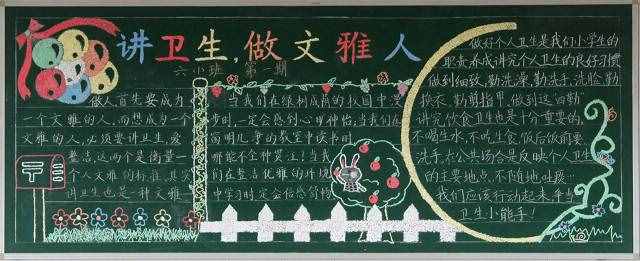 讲卫生,做文雅人
六小班 第二期
做人首先要成为
一个文雅的人,而想成为一个
文雅的人,必须要讲卫生,爱
整洁,这两个是衡量一
个人文雅的标准,其实
讲卫生也是一种文雅
当我们在绿树成荫的校园中漫
步时,一定会感到心旷神怡,当我们在
窗明几净的教室中读书时
哪能不全神贯注!当我
们在整洁优雅的环境
中学习时定会倍感舒畅
做好个人卫生是我们小学生的
职责,养成讲究个人卫生的良好习惯
做到细致,勤洗澡,勤洗手,洗脸,勤
换衣,勤剪指甲,做到这"四勤"
讲究饮食卫生也是十分重要的,
不喝生水,不吃生食,饭后饭前要
洗手,公共场合是反映个人卫生
的主要地点,不随地吐痰…
我们应该行动起来,争当
卫生小能手!